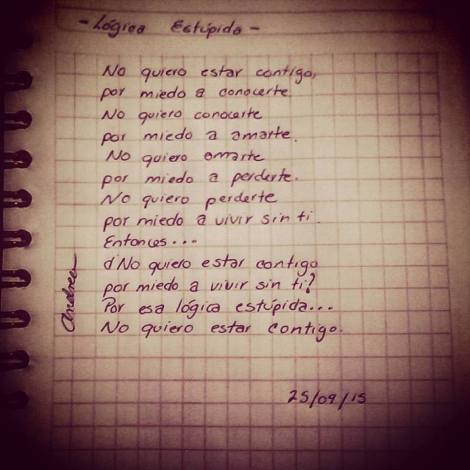 - Lógica Estúpida -
No quiero estar contigo,
por miedo a conocerte
No quiero conocerte
por miedo a amarte.
No quiero amarte
por miedo a perderte.
No quiero perderte
por miedo a vivir sin ti.
Entonces...
¿No quiero estar contigo
por miedo a vivir sin ti?
Por esa lógica estúpida...
No quiero estar contigo.
25/09/15